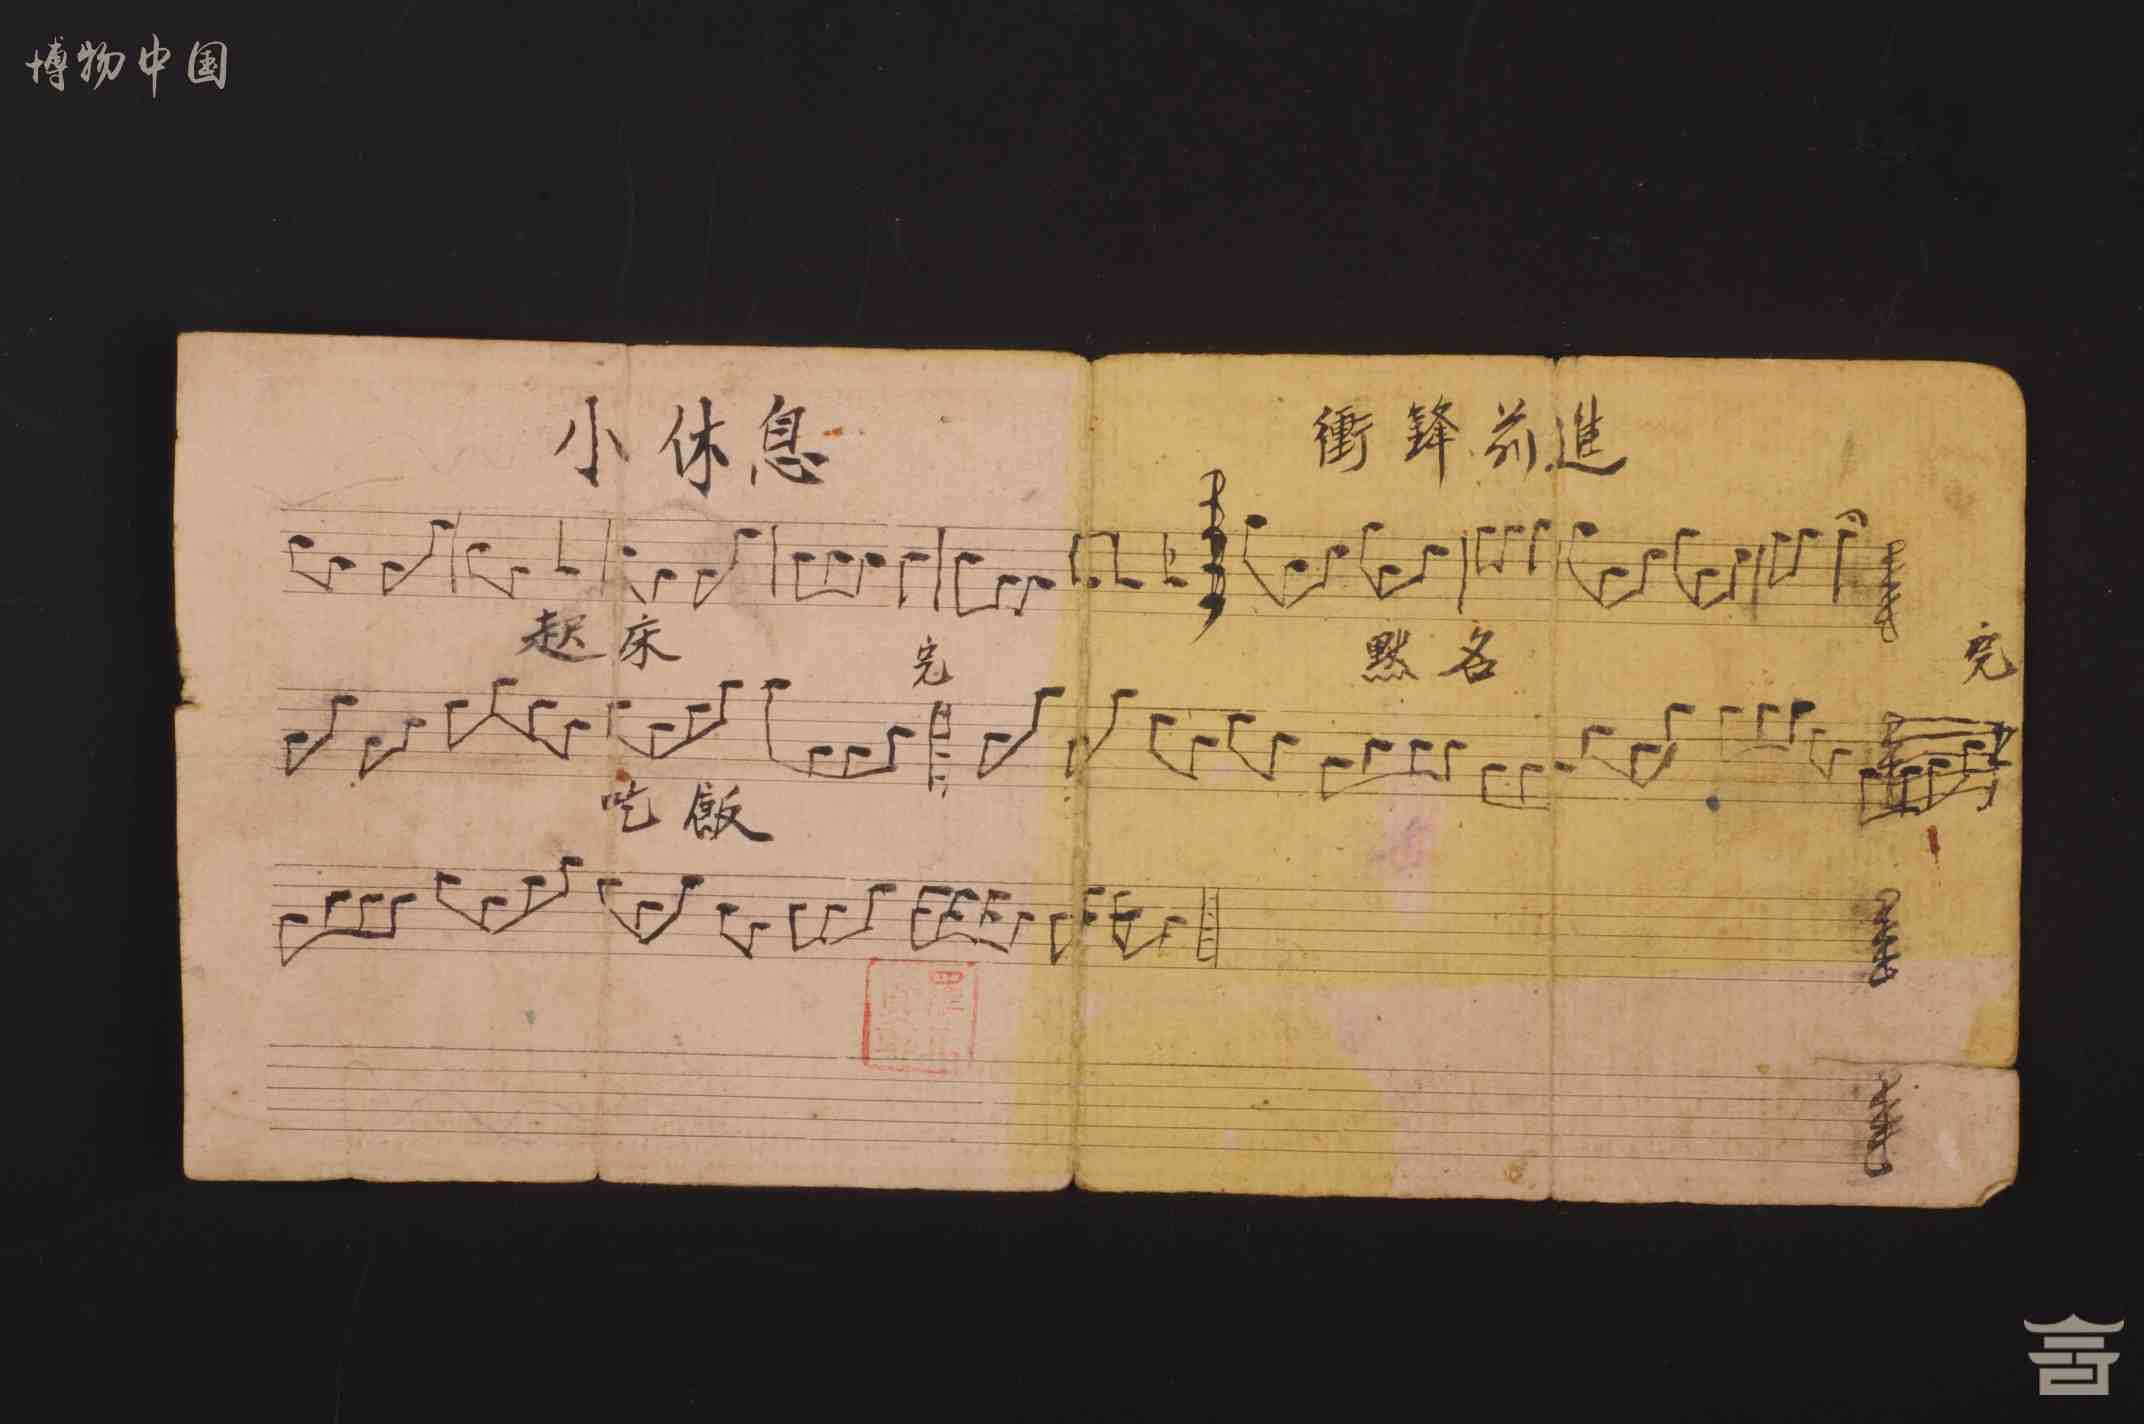 博物中国
小休息 衝鋒前進
起床 完 點名 完
吃飯